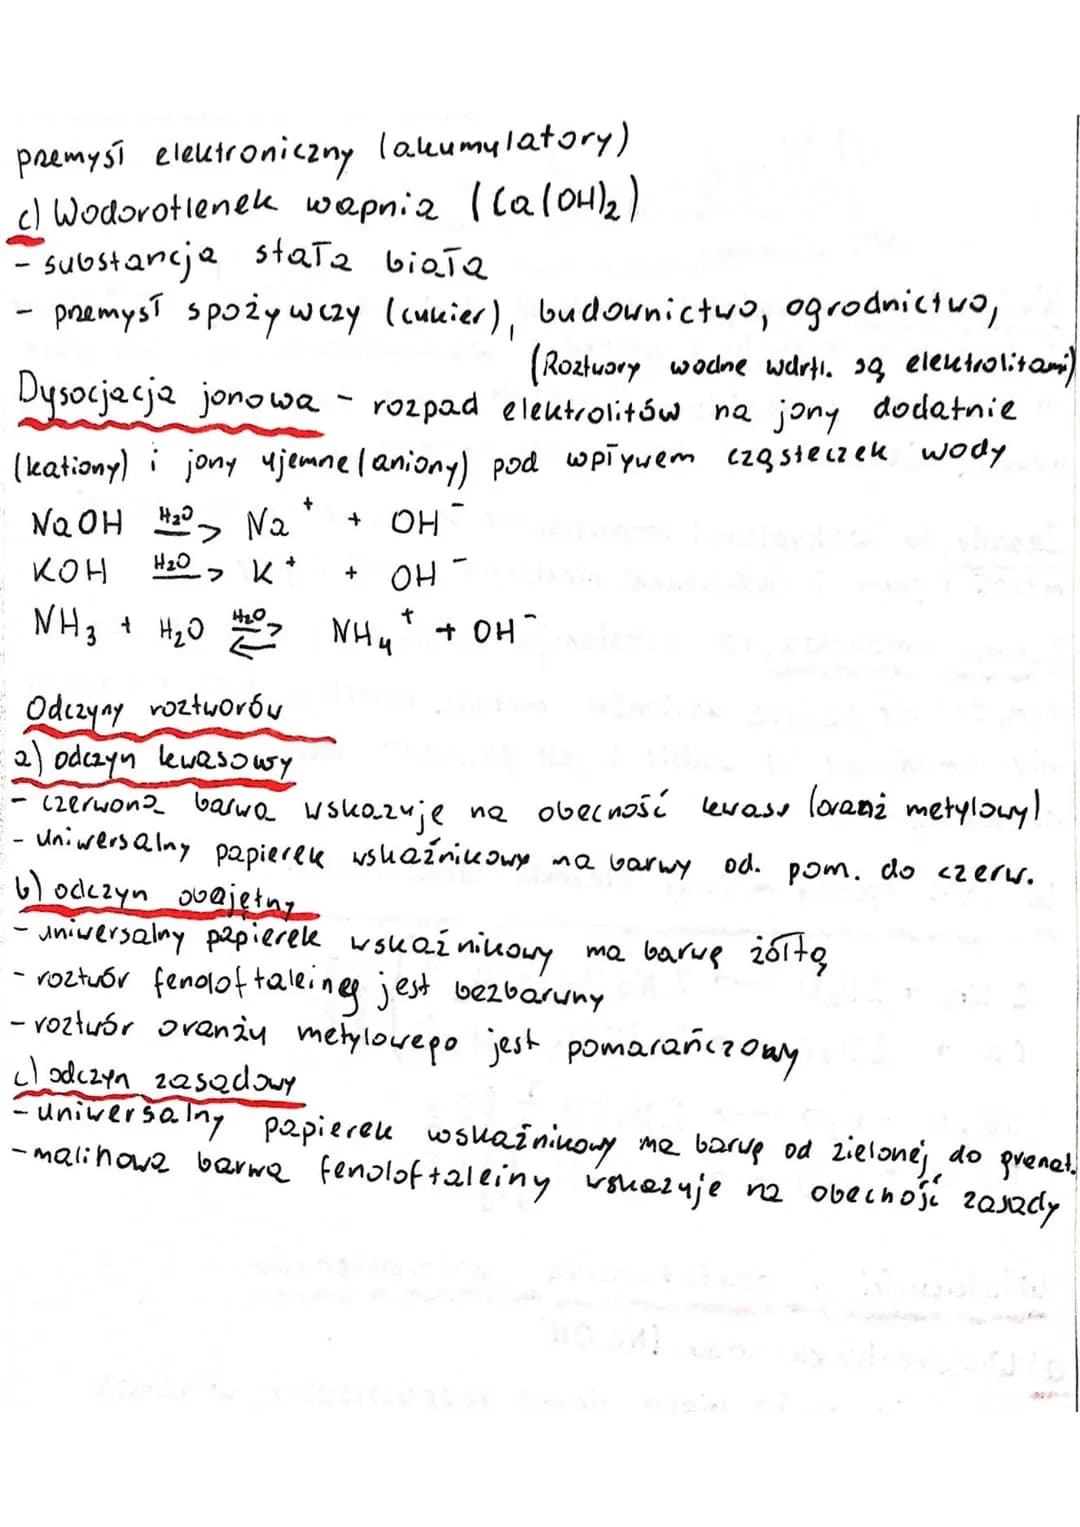 przemysł elektroniczny (akumulatory)
c) Wodorotlenek wapnia (Ca(OH)₂)
- substancja stała biała
- przemysł spożywczy (cukier), budownictwo, ogrodnictwo,
(Roztwory wodne wdrtl. są elektrolitami)
Dysocjacja jonowa - rozpad elektrolitów na jony dodatnie
(kationy) i jony ujemne (aniony) pod wpływem cząsteczek wody
NaOH H₂O> Na⁺ + OH⁻
KOH H₂O> K⁺ + OH⁻
NH₃ + H₂O H₂O⇄ NH₄⁺ + OH⁻
Odczyny roztworów
a) odczyn kwasowy
- czerwona barwa wskazuje na obecność kwasu (oranż metylowy)
- uniwersalny papierek wskaźnikowy ma barwy od. pom. do czerw.
b) odczyn obojętny
- uniwersalny papierek wskaźnikowy ma barwę żółtą
- roztwór fenoloftaleiney jest bezbarwny
- roztwór oranżu metylowego jest pomarańczowy
c) odczyn zasadowy
- uniwersalny papierek wskaźnikowy ma barwę od zielonej do grenat.
- malinowa barwa fenoloftaleiny wskazuje na obecność zasady